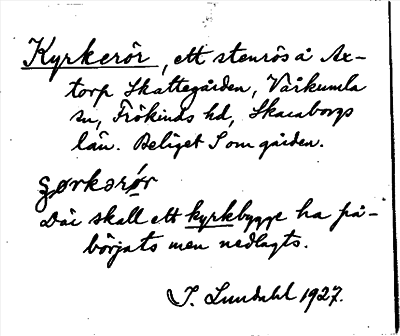 Kyrkerör, ett stenrös å Ax-
torp Skattegården, Vårkumla
sn, Frökinds hd, Skaraborgs
län. Beläget S om gården.
ɕørkərör
Där skall ett kyrkbygge ha på-
börjats men nedlagts.
J. Lundahl 1927.